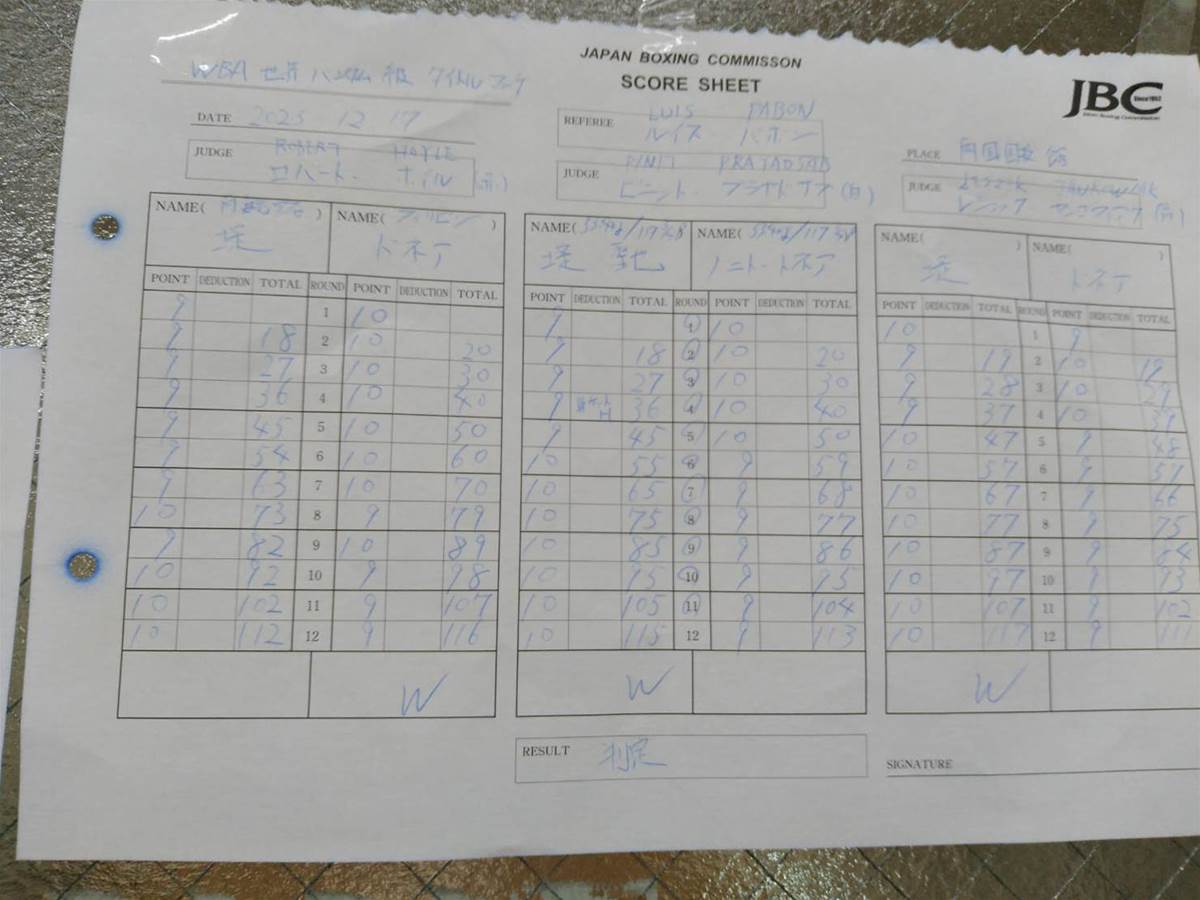 JAPAN BOXING COMMISSON
SCORE SHEET
JBC
Since1952
WBA 世界 バンタム 級 タイトルマッチ
DATE 2025 12 17
REFEREE LUIS PABON
ルイス パボン
PLACE 両国国技館
JUDGE ROBERT HOYLE
ロバート・ホイル (赤)
JUDGE PINIT PRAYADSAB
ピニット・プラヤドサブ (白)
JUDGE
レシェック (青)
NAME( ) NAME( フィリピン )
堤 ドネア
POINT DEDUCTION TOTAL ROUND POINT DEDUCTION TOTAL
9 1 10
9 18 2 10 20
9 27 3 10 30
9 36 4 10 40
9 45 5 10 50
9 54 6 10 60
9 63 7 10 70
10 73 8 9 79
9 82 9 10 89
10 92 10 9 98
10 102 11 9 107
10 112 12 9 116
W
NAME( NAME(
堤 聖也 ノニト・ドネア
POINT DEDUCTION TOTAL ROUND POINT DEDUCTION TOTAL
9 1 10
9 18 2 10 20
9 27 3 10 30
9 36 4 10 40
9 45 5 10 50
10 55 6 9 59
10 65 7 9 68
10 75 8 9 77
10 85 9 9 86
10 95 10 9 95
10 105 11 9 104
10 115 12 9 113
W
NAME( ) NAME( )
堤 ドネア
POINT DEDUCTION TOTAL ROUND POINT DEDUCTION TOTAL
10 1 9
9 19 2 10 19
9 28 3 10 29
9 37 4 10 39
10 47 5 9 48
10 57 6 9 57
10 67 7 9 66
10 77 8 9 75
10 87 9 9 84
10 97 10 9 93
10 107 11 9 102
10 117 12 9 111
W
RESULT 判定
SIGNATURE